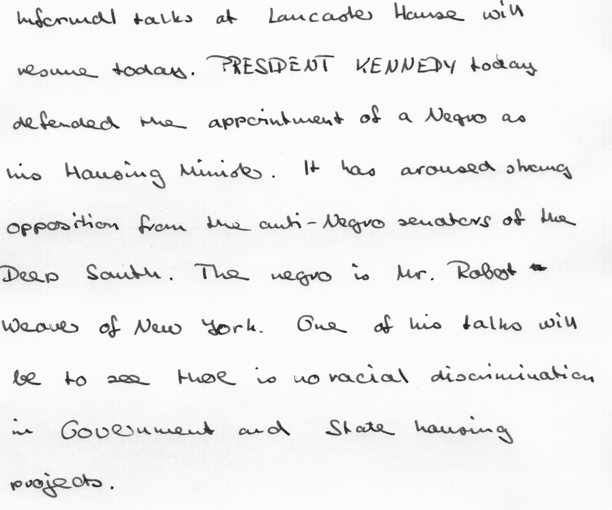 informal talks at Lancaster House will
resume today. PRESIDENT KENNEDY today
defended the appointment of a Negro as
his Housing Minister. It has aroused strong
opposition from the anti-Negro senators of the
Deep South. The negro is Mr. Robert
Weaver of New York. One of his talks will
be to see there is no racial discrimination
in Government and State housing
projects.